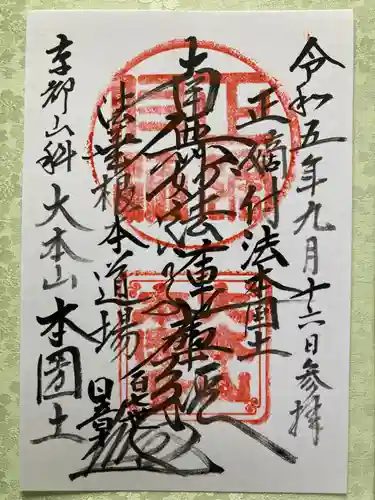 令和五年九月十六日参拝
正嫡付法本国土
南無妙法蓮華経
法華根本道場
京都山科大本山本圀土